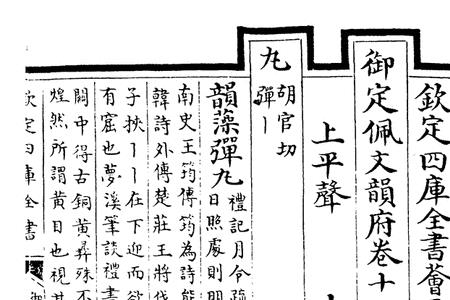 欽定四庫全書薈
御定佩文韻府卷十
上平聲
丸胡官切
彈丨
韻藻彈丸禮記月令疏
日照處則明
南史王筠傳筠為詩能
韓詩外傳楚莊王將伐
子挾丨丨在下迎而欲
有窟也夢溪筆談禮書
闕中得古銅黃彝殊不
煌然所謂黃目也視其
欽定四庫全書